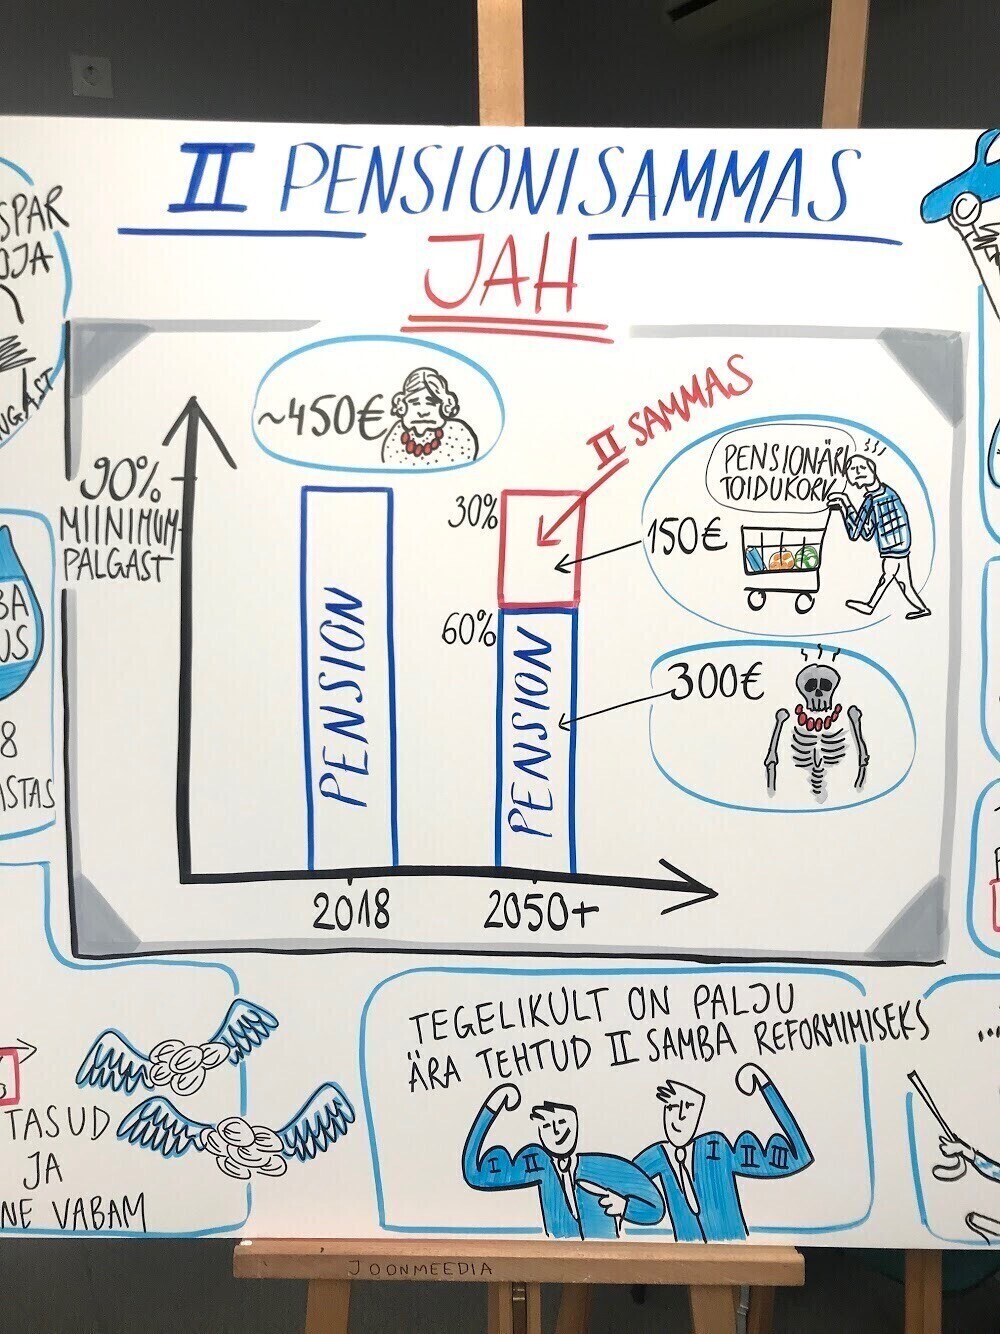 II PENSIONISAMMAS
JAH
SPAR
OJA
~450€
II SAMMAS
90%
MIINIMUM-
PALGAST
30%
PENSIONÄRI
TOIDUKORV
150€
60%
300€
PENSION
PENSION
BA
US
8
ASTAS
2018
2050+
TEGELIKULT ON PALJU
ÄRA TEHTUD II SAMBA REFORMIMISEKS
TASUD
JA
NE VABAM
I II
I II III
JOONMEEDIA